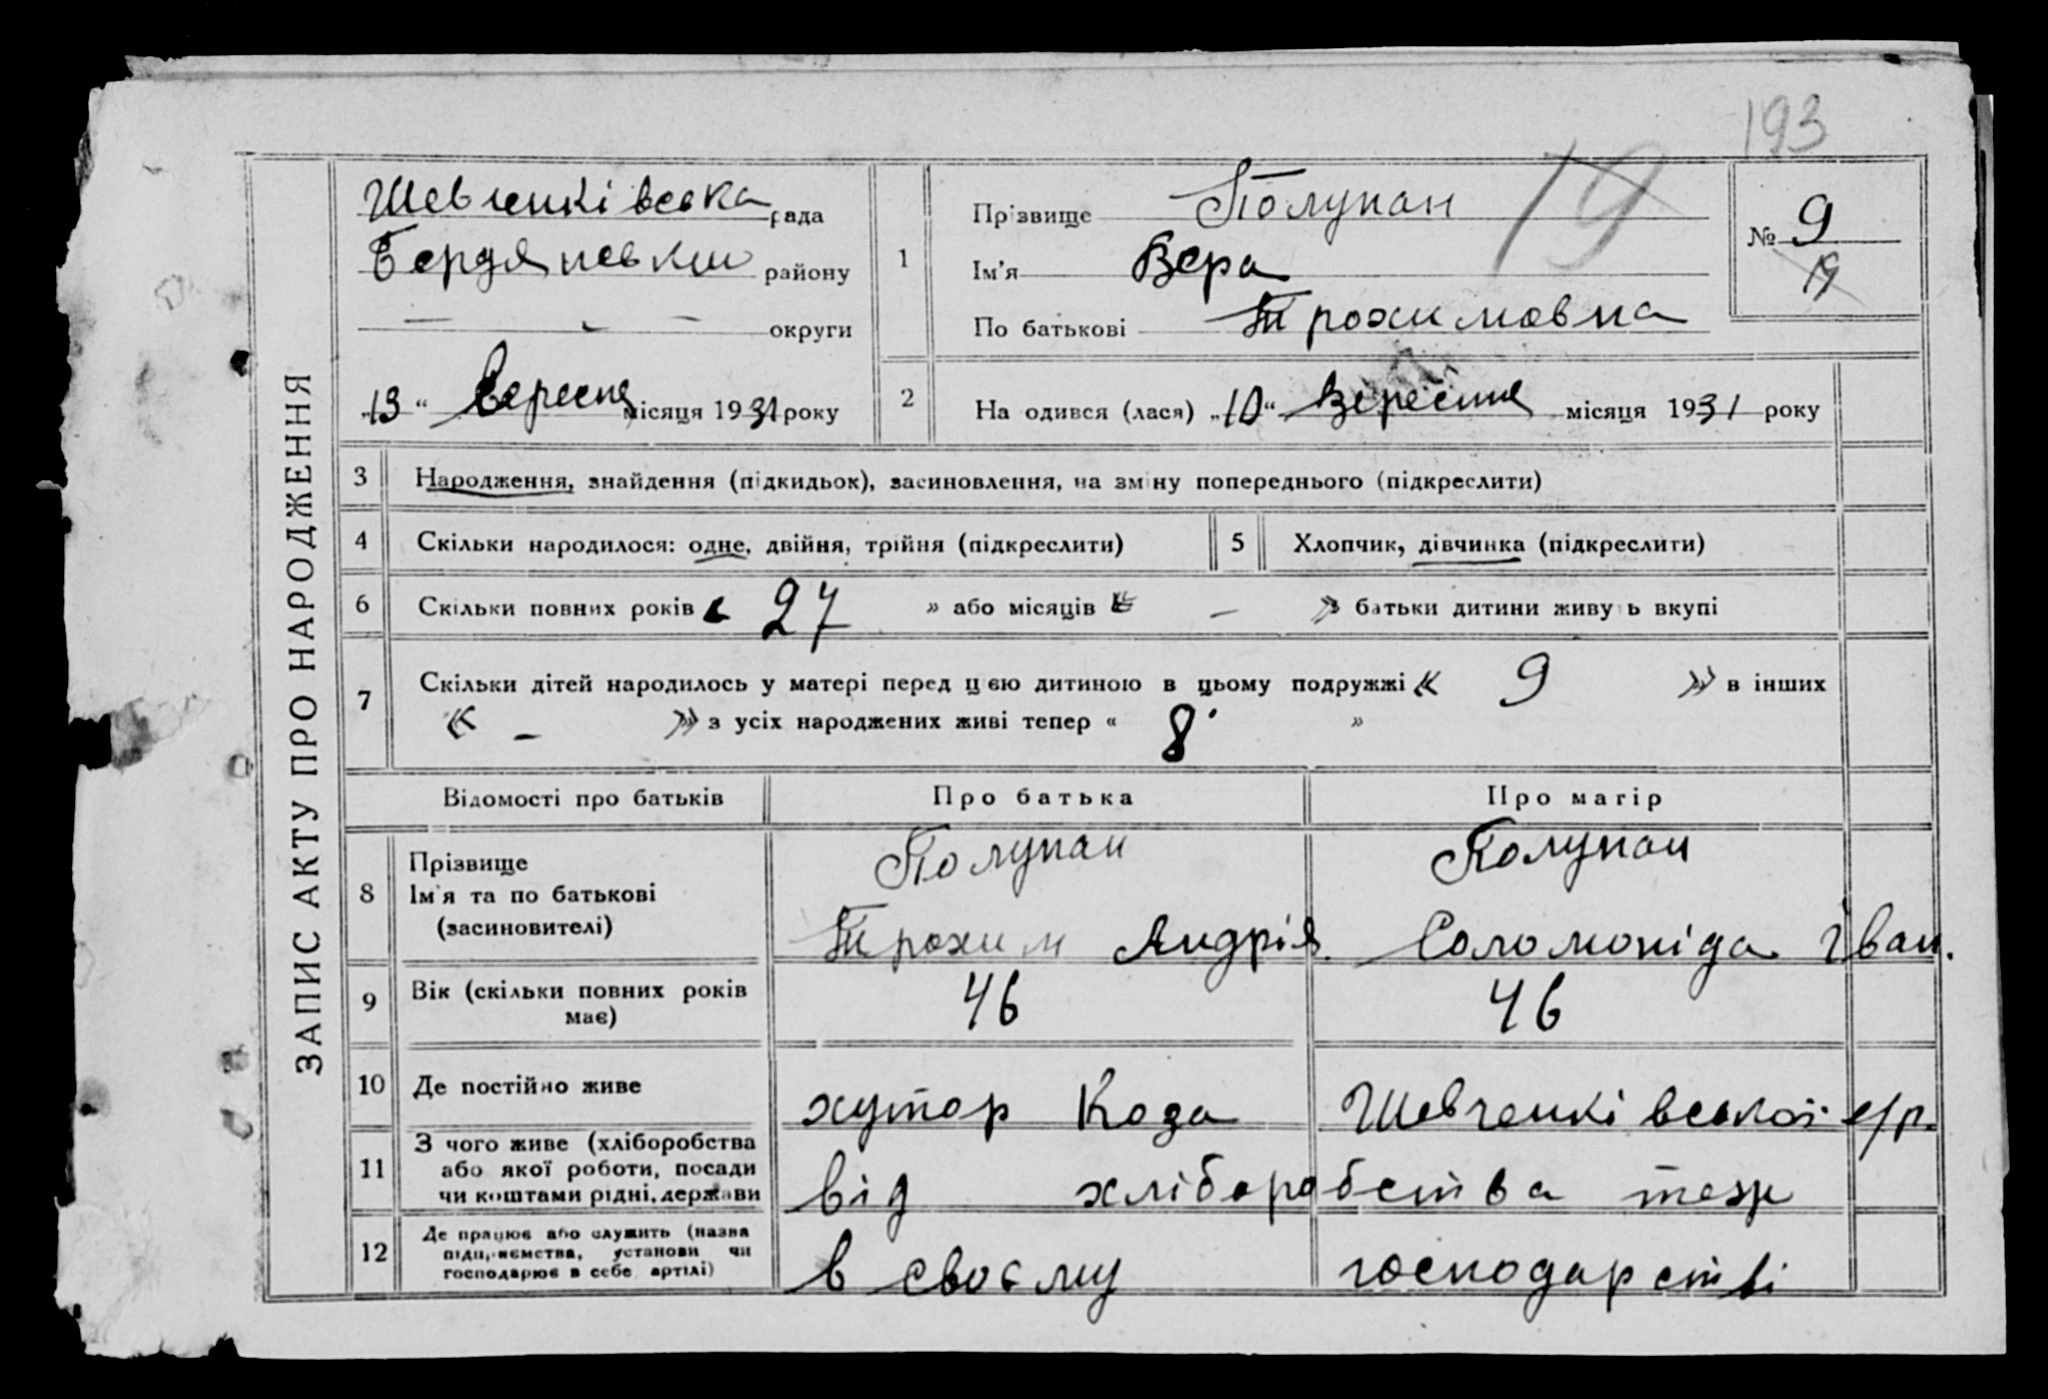 193
ЗАПИС АКТУ ПРО НАРОДЖЕННЯ
Шевченківська рада
Бердянсько району
— — — округи
„13“ Вересня місяця 1931 року
1
Прізвище Полупан
Ім'я Вера
По батькові Трохимовна
19
№ 9
19
2
На одився (лася) „10“ Вересня місяця 1931 року
3 Народження, знайдення (підкидьок), засиновлення, на зміну попереднього (підкреслити)
4 Скільки народилося: одне, двійня, трійня (підкреслити) 5 Хлопчик, дівчинка (підкреслити)
6 Скільки повних років « 27 » або місяців « — » батьки дитини живуть вкупі
7 Скільки дітей народилось у матері перед цією дитиною в цьому подружжі « 9 » в інших
« — » з усіх народжених живі тепер « 8 »
Відомості про батьків Про батька Про матір
8 Прізвище Полупан Полупан
Ім'я та по батькові
(засиновителі) Трохим Андрія. Соломоніда Іван.
9 Вік (скільки повних років
має) 46 46
10 Де постійно живе хутор Коза Шевченківської с/р.
11 З чого живе (хліборобства
або якої роботи, посади
чи коштами рідні, держави від хліборобства теж
12 Де працює або служить (назва
підприємства, установи чи
господарює в себе, артілі) в своєму господарстві